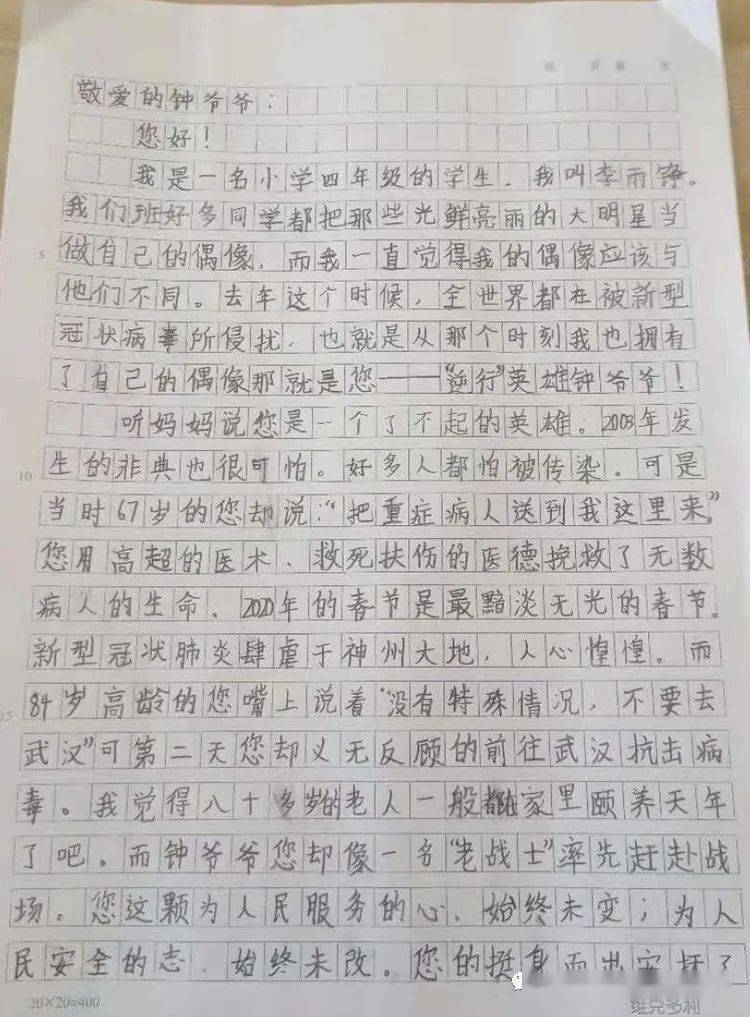 敬爱的钟爷爷：
您好！
我是一名小学四年级的学生、我叫李雨铮。
我们班好多同学都把那些光鲜亮丽的大明星当
5
做自己的偶像，而我一直觉得我的偶像应该与
他们不同。去年这个时候，全世界都在被新型
冠状病毒所侵扰，也就是从那个时刻我也拥有
了自己的偶像那就是您——“逆行”英雄钟爷爷！
听妈妈说您是一个了不起的英雄。2003年发
10
生的非典也很可怕。好多人都怕被传染。可是
当时67岁的您却说：“把重症病人送到我这里来。”
您用高超的医术、救死扶伤的医德挽救了无数
病人的生命、2020年的春节是最黯淡无光的春节。
新型冠状肺炎肆虐于神州大地，人心惶惶。而
15
84岁高龄的您嘴上说着“没有特殊情况，不要去
武汉”可第二天您却义无反顾的前往武汉抗击病
毒。我觉得八十多岁的老人一般都在家里颐养天年
了吧。而钟爷爷您却像一名“老战士”率先赶赴战
场。您这颗为人民服务的心、始终未变；为人
民安全的志、始终未改。您的挺身而出
20×20=400
维克多利